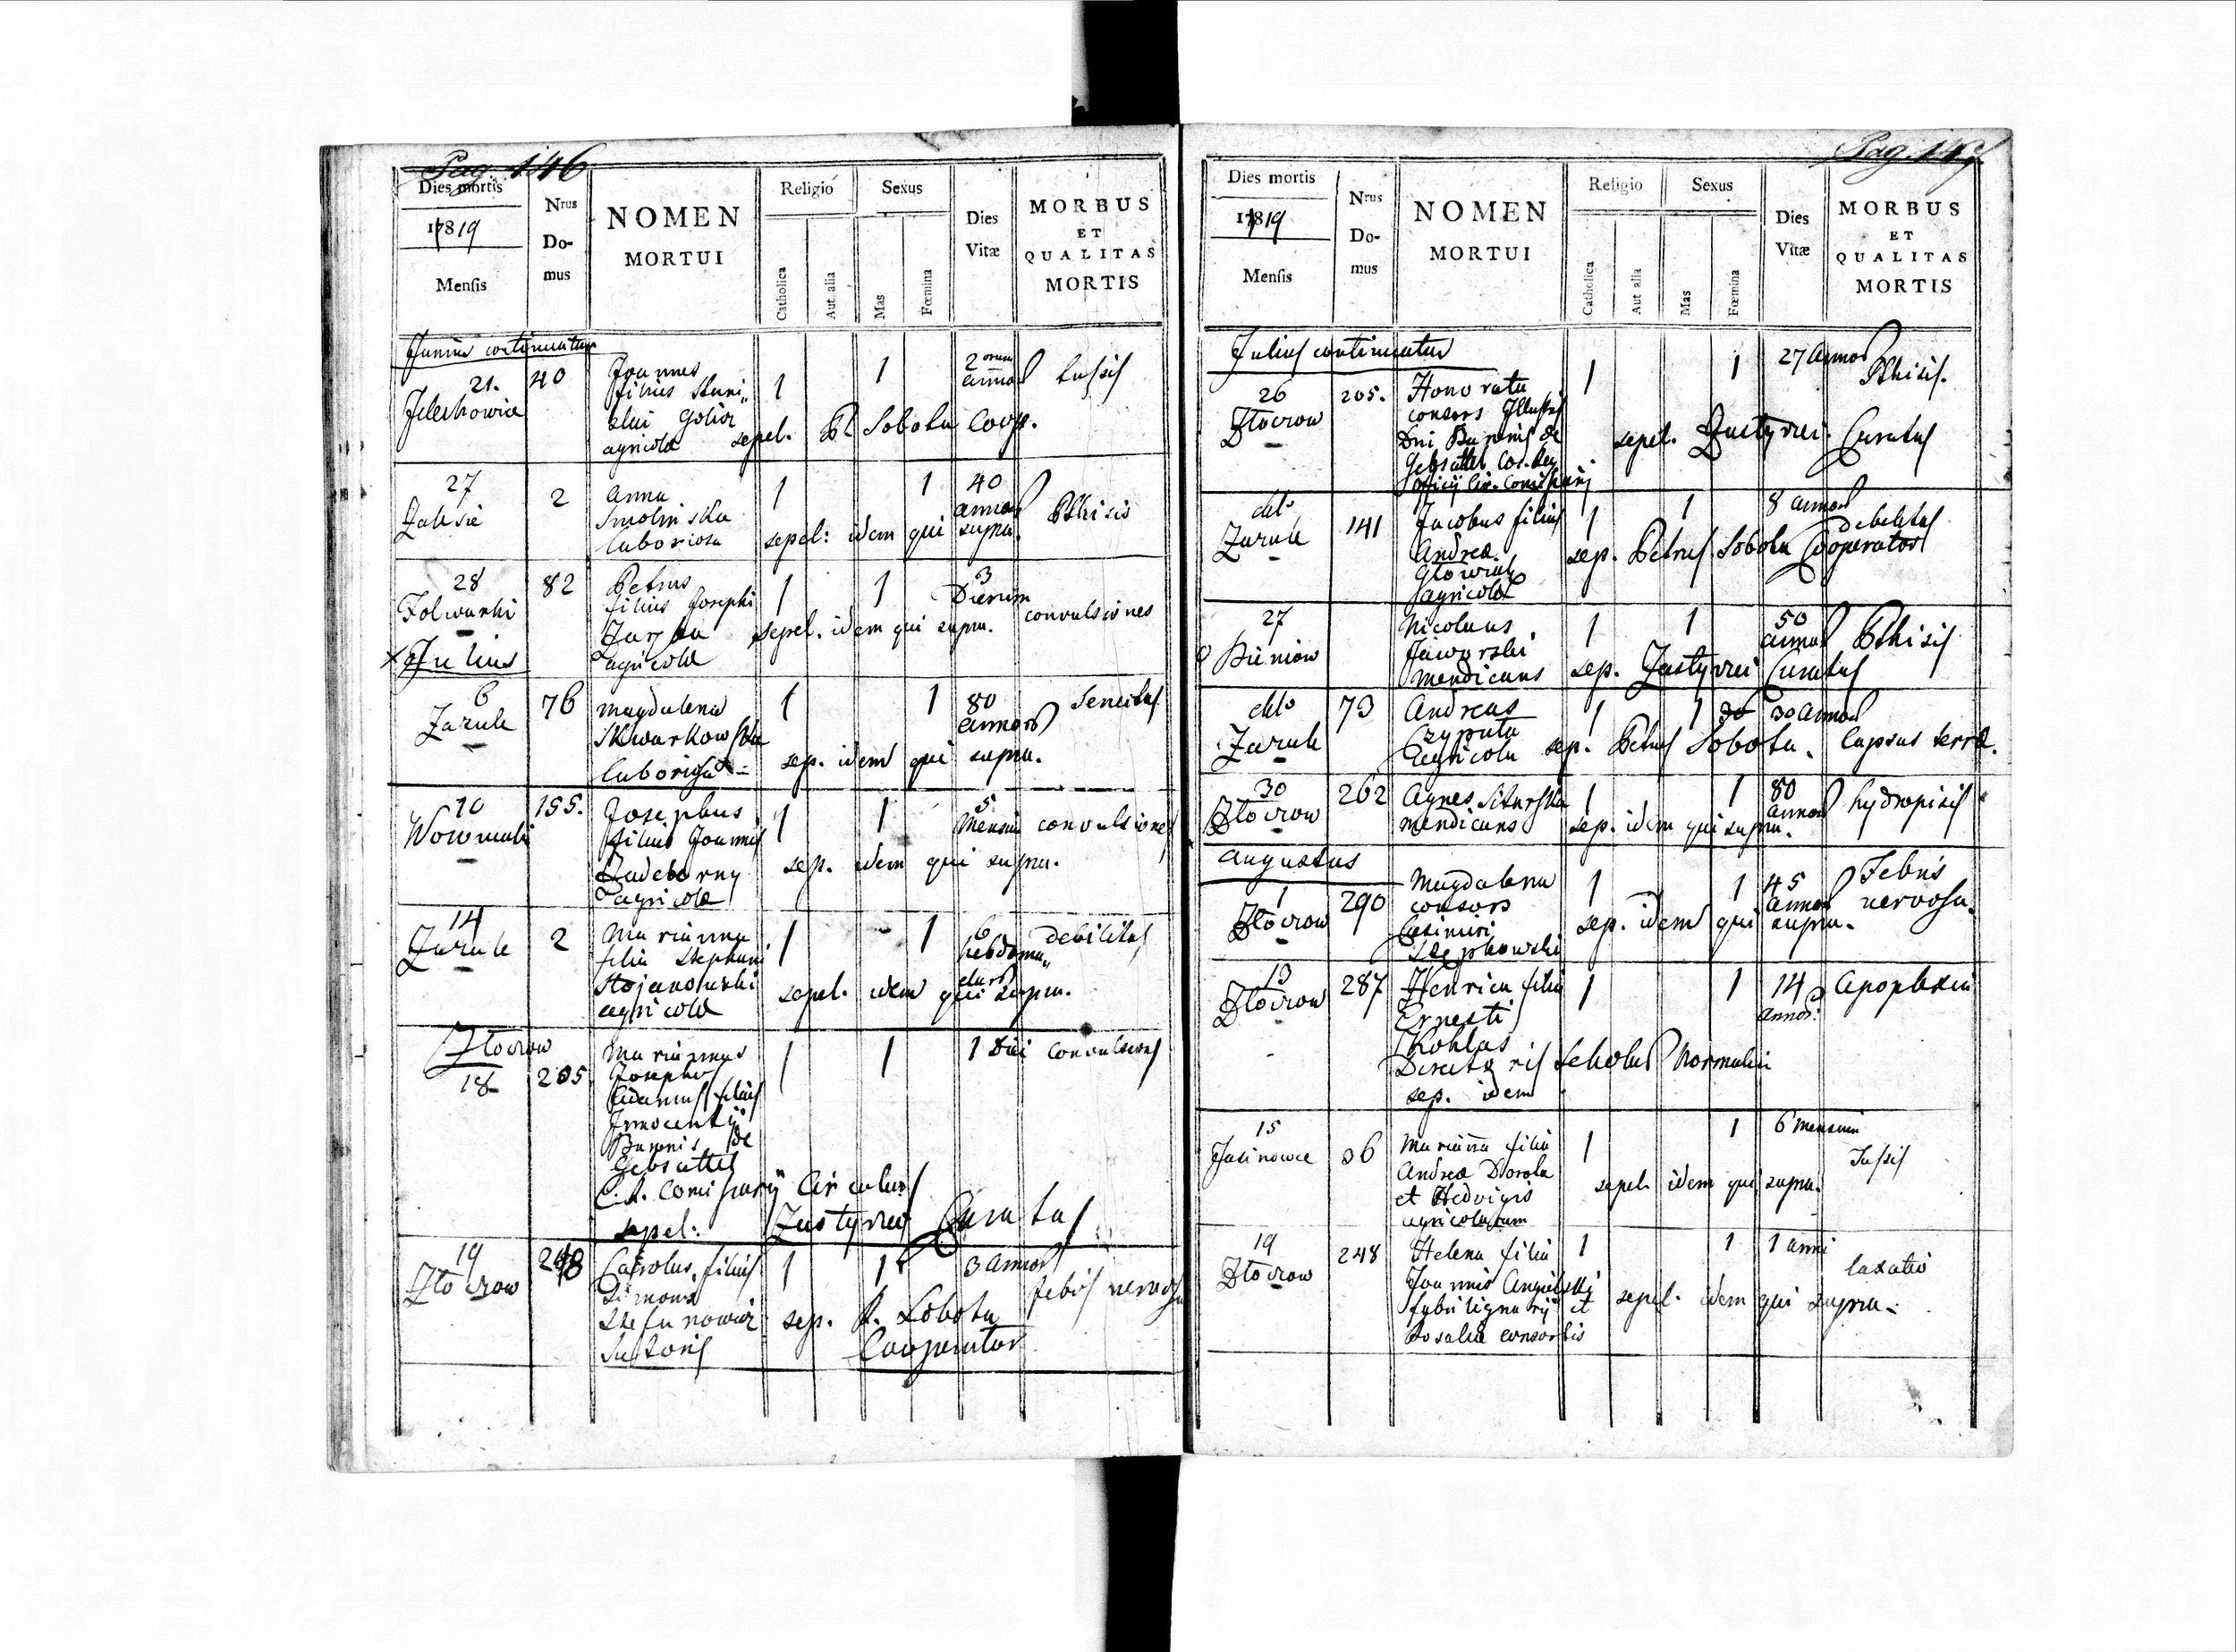 Pag. 146
Dies mortis
1819
Mensis
Nrus Do- mus
NOMEN
MORTUI
Religio
Catholica
Aut alia
Sexus
Mas
Fœmina
Dies
Vitæ
MORBUS
ET
QUALITAS
MORTIS
Junius continuatur
21. 40 Joannes 1 1 2 orum tussis
Jelechowice filius Stani„ annor
slai
agricolæ sepel. P. Sobota Coop.
27 2 Anna 1 1 40 Phtisis
Zalesie Smolinska annor
laboriosa sepel: idem qui supra.
28 82 Petrus 1 1 3 convulsiones
Folwarki filius Josephi Dierum
sepel. idem qui supra.
Julius agricolæ
6 76 Magdalena 1 1 80 Senectus
Zarule Skwarkowska annor
laboriosa sep. idem qui supra.
10 155. Josephus 1 1 5 convulsiones
Woroniaki filius Joannis Mensium
sep. idem qui supra.
agricolæ
14 2 Marianna 1 1 6 debilitas
Zarule filia Stephani hebdoma„
Stojanowski darum
agricolæ sepel. idem qui supra.
Złoczow Mariannus 1 1 1 Diei convulsiones
18 205 Josephus
filius
Innocentii
Baronis de
Gebsattel
C. R. Comissarii Circularis
sepel: Zastyrzei Curatus
19 248 Carolus filius 1 1 3 annor febris nervosa
Złoczow Simonis
Stefanowicz sep. P. Sobota
Sutoris Cooperator
Pag. 147
Dies mortis
1819
Mensis
Nrus Do- mus
NOMEN
MORTUI
Religio
Catholica
Aut alia
Sexus
Mas
Fœmina
Dies
Vitæ
MORBUS
ET
QUALITAS
MORTIS
Julius continuatur
26 205. Honorata 1 1 27 annor Phtisis.
Złoczow consors Illustris
Dni Baronis de sepel. Zastyrzei Curatus
Gebsattel
dtto 141 Jacobus filius 1 1 8 annor debilitas
Zarule Andreæ sep. Petrus Sobota Cooperator
agricolæ
27 Nicolaus 1 1 50 Phtisis
Pieniow Jaworski annor
mendicans sep. Zastyrzei Curatus
dtto 73 Andreas 1 1 30 30 annor
Zarule Czyputa lapsus terræ.
Agricola sep. Petrus Sobota.
30 262 Agnes 1 1 80 hydropisis
Złoczow mendicans annor
sep. idem qui supra.
Augustus
1 290 Magdalena 1 1 45 Febris
Złoczow consors annor nervosa.
Casimiri sep. idem qui supra.
Stepkowski
13 287 Henrica filia 1 1 14 apoplexia
Złoczow Ernesti annor:
Kohlas
Directoris Scholæ Normalis
sep. idem
15 36 Marianna filia 1 1 6 Mensium
Jasinowce Andreæ Dorola Tussis
et Hedvigis sepel. idem qui supra.
agricolarum
19 248 Helena filia 1 1 1 anni
Złoczow Joannis laxatio
fabri lignarii et sepel. idem qui supra.
Rosalia consortis